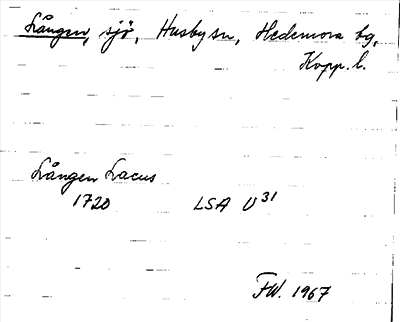 Lången, sjö, Husby sn, Hedemora tg,
Kopp. l.
Lången Lacus
1720 LSA U³¹
FW. 1967